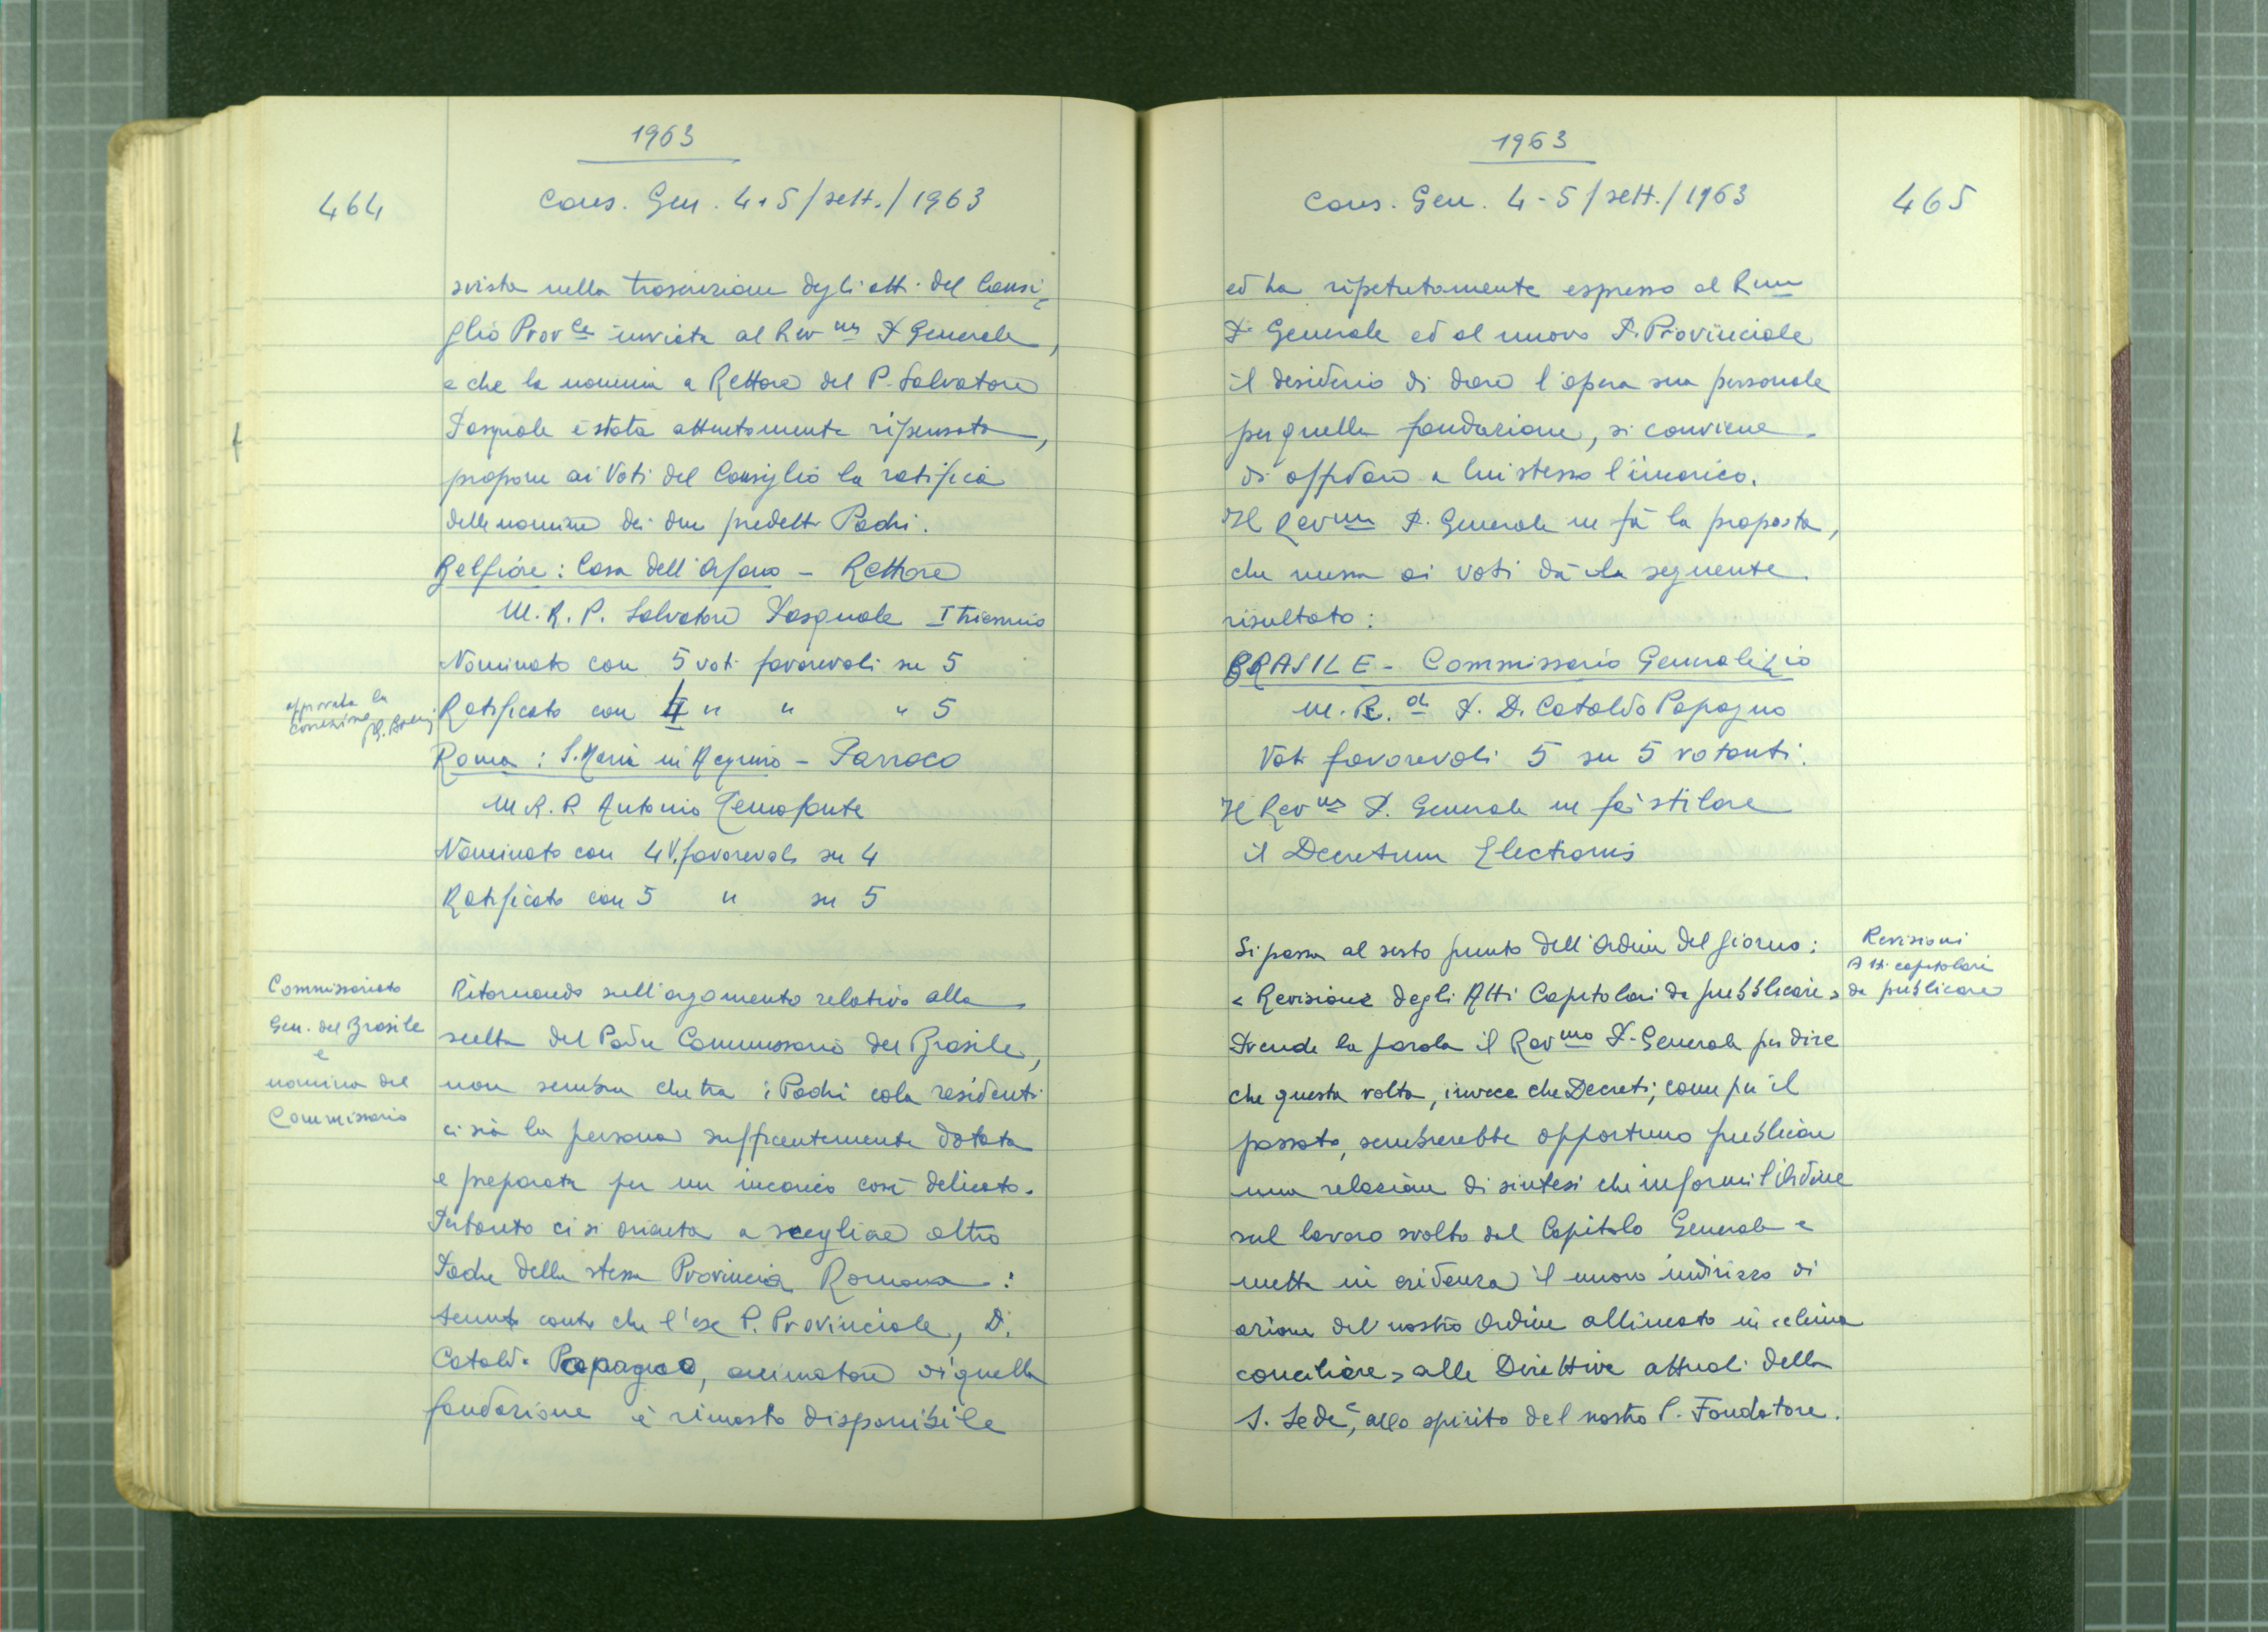 1963
464
Cons. Gen. 4-5/sett./1963
svista nella trascrizione degli atti del Consi=
glio Prov.le inviata al Rev.mo P. Generale,
e che la nomina a Rettore del P. Salvatore
Pasquale è stata attentamente ripensata,
propone ai Voti del Consiglio la ratifica
delle nomine dei due predetti Padri.
Belfiore: Casa dell'Orfano - Rettore
M.R.P. Salvatore Pasquale I triennio
Nominato con 5 voti favorevoli su 5
approvata la
correzione
Ratificato con 4 " " " 5
Roma: S. Maria in Aquiro - Parroco
M.R.P. Antonio Temofonte
Nominato con 4 V. favorevoli su 4
Ratificato con 5 " su 5
Commissariato
Gen. del Brasile
e
nomina del
Commissario
Ritornando sull'argomento relativo alla
scelta del Padre Commissario del Brasile,
non sembra che tra i Padri cola residenti
ci sia la persona sufficentemente dotata
e preparata per un incarico così delicato.
Pertanto ci si orienta a scegliere altro
Padre della stessa Provincia Romana:
tenuto conto che l'ex P. Provinciale, D.
Cataldo Papagno, animatore di quella
fondazione è rimasto disponibile
1963
Cons. Gen. 4-5/sett./1963
465
ed ha ripetutamente espresso al Rmo
P. Generale ed al nuovo P. Provinciale
il desiderio di dare l'opera sua personale
per quella fondazione, si conviene
di affidare a lui stesso l'incarico.
Il Rev.mo P. Generale ne fà la proposta,
che messa ai voti dà la seguente
risultato:
BRASILE - Commissario Generalizio
M.R. P. D. Cataldo Papagno
Voti favorevoli 5 su 5 votanti.
Il Rev.mo P. Generale ne fà stilare
il Decretum Electionis
Si passa al sesto punto dell'Ordine del giorno:
Revisioni
Atti capitolari
da publicare
"Revisione degli Atti Capitolari da pubblicare"
Prende la parola il Rev.mo P. Generale per dire
che questa volta, invece che Decreti, come per il
passato, sembrerebbe opportuno pubblicare
una relazione di sintesi che informi l'Ordine
sul lavoro svolto dal Capitolo Generale e
metta in evidenza il nuovo indirizzo di
azione del nostro Ordine allineato in "clima
conciliare" alle Direttive attuali della
S. Sede e, allo spirito del nostro S. Fondatore.